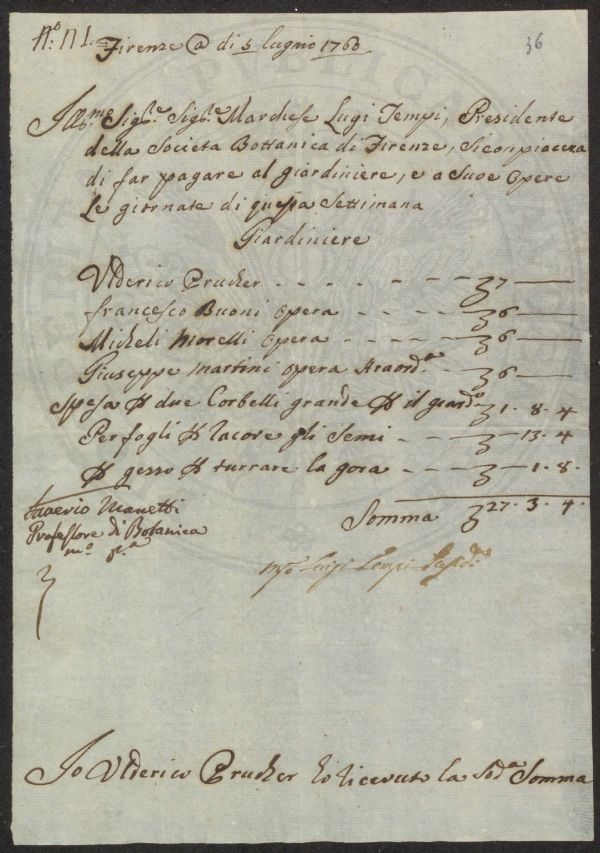 N.° 11
Firenze @ di 5 Lugnio 1760
36
Ill:mo Sig:re Sig:re Marchese Lugi Tempi, Presidente
della Societa Bottanica di Firenze, si conpiacera
di far pagare al giardiniere, e a Suoe Opere
Le giornate di questa Settimana
Giardiniere
Vlderico Prucker - - - - - - - 7 —
francesco Buoni Opera - - - - - 6 —
Micheli Morelli Opera - - - - 6 —
Giuseppe Martini opera straord.a - - 6 —
Spesa P due Corbelli grande P il giard.o 1. 8. 4
Per fogli P lacore gli Semi - - - 13. 4
P gesso P turrare la gora - - - 1. 8.
Somma 27. 3. 4.
Saverio Manetti
Professore di Botanica
m.o p.a
Luigi Tempi
Io Vlderico Prucker ho ricevuto la Sod.a Somma